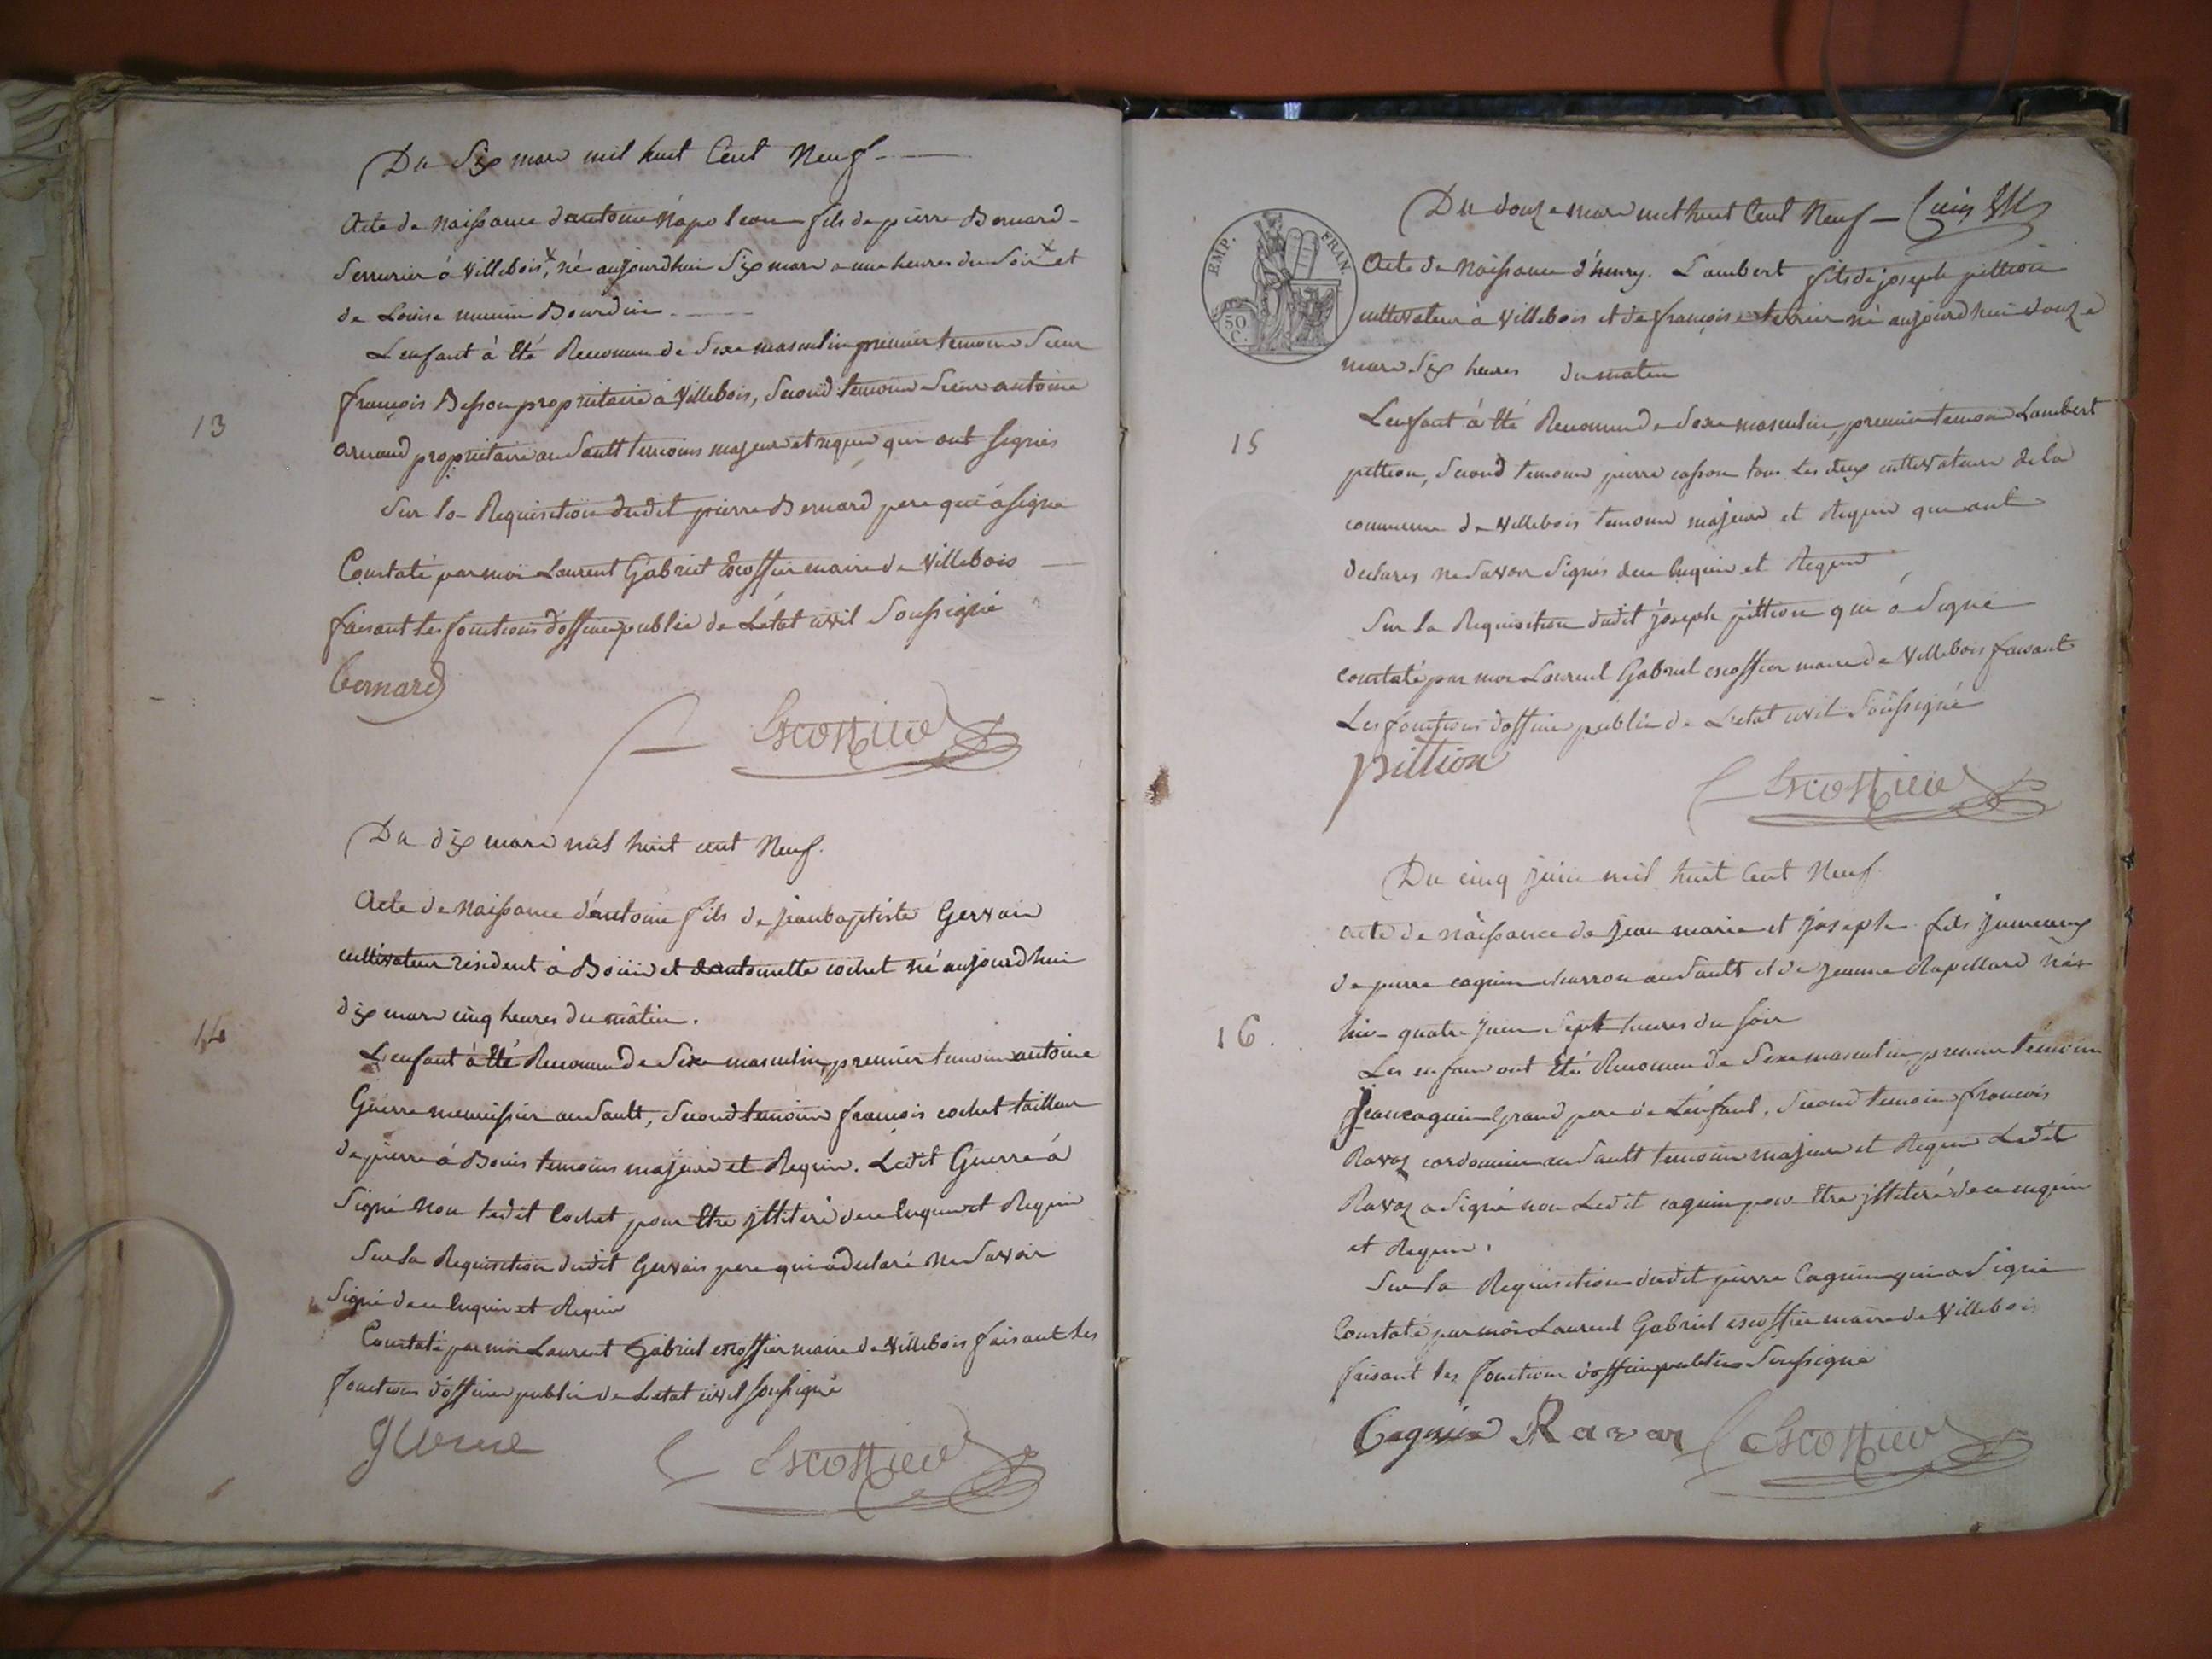 Du Six mars mil huit Cent Neuf
Acte de Naissance d'antoine Napoleon fils de pierre Bernard
Serrurier à Villebois, né aujourd'hui Six mars a une heures du Soir et
de Louise Bourdin
13
L'enfant à Eté Reconnu de Sexe masculin premier temoin Sieur
françois Besson propriétaire à Villebois, Second temoin Sieur antoine
propriétaire au Sault temoins majeurs et requis qui ont signés
Sur la Requisition dudit pierre Bernard pere qui à signé
Constaté par moi Laurent Gabriel Escoffier maire de Villebois
faisant les fonctions d'officier public de L'état civil Soussigné
bernard
Escoffier
Du dix mars mil huit cent Neuf.
Acte de Naissance d'antoine fils de jean baptiste Gervais
cultivateur résident à Boüis et d'antoinette cochet né aujourd'hui
dix mars cinq heures du mâtin.
14
L'enfant à Eté Reconnu de Sexe masculin, premier temoin antoine
Guerre menuisier au Sault, Second temoin françois cochet tailleur
de pierre à Bouis temoins majeurs et Requis. Ledit Guerre à
Signé Non ledit Cochet pour Etre jllitéré de ce Enquis et Requis
Sur la Requisition dudit Gervais pere qui à declaré Ne Savoir
Signé de ce Enquis et Requis
Constaté par moi Laurent Gabriel escoffier maire de Villebois faisant les
fonctions d'officier public de L'etat civil soussigné
guerre
Escoffier
Du douze mars mil huit Cent Neuf
EMP. FRAN.
50 C.
Acte de Naissance d'henry. Lambert fils de joseph pittion
cultivateur a Villebois et de françoise né aujourd'hui douze
mars Six heures du matin
15
L'enfant à Eté Reconnu de Sexe masculin, premier temoin Lambert
pittion, Second temoin pierre casson tous Les deux cultivateurs de la
commune de Villebois temoins majeurs et Requis qui ont
declarés ne Savoir Signés de ce Enquis et Requis
Sur La Requisition dudit joseph pittion qui à Signé
constaté par moi Laurent Gabriel escoffier maire de Villebois faisant
Les fonctions d'officier public de L'etat civil Soussigné
pittion
Escoffier
Du cinq juin mil huit Cent Neuf.
acte de naissance de jean marie et joseph fils jumeaux
de pierre caguin charron au Sault et de jeanne Rapillard nés
16.
hier quatre juin Sept heures du soir
Les enfans ont Eté Reconnu de Sexe masculin, premier témoin
jean caguin Grand pere de L'enfant, Second temoin françois
Ravaz cordonnier au Sault temoins majeurs et Requis Ledit
Ravaz a Signé non Ledit caguin pour Etre jllitéré de ce enquis
et Requis.
Sur la Requisition dudit pierre Caguin qui a Signé
Constaté par moi Laurent Gabriel escoffier maire de Villebois
faisant les fonctions d'officier public Soussigné
Caguin Ravaz Escoffier